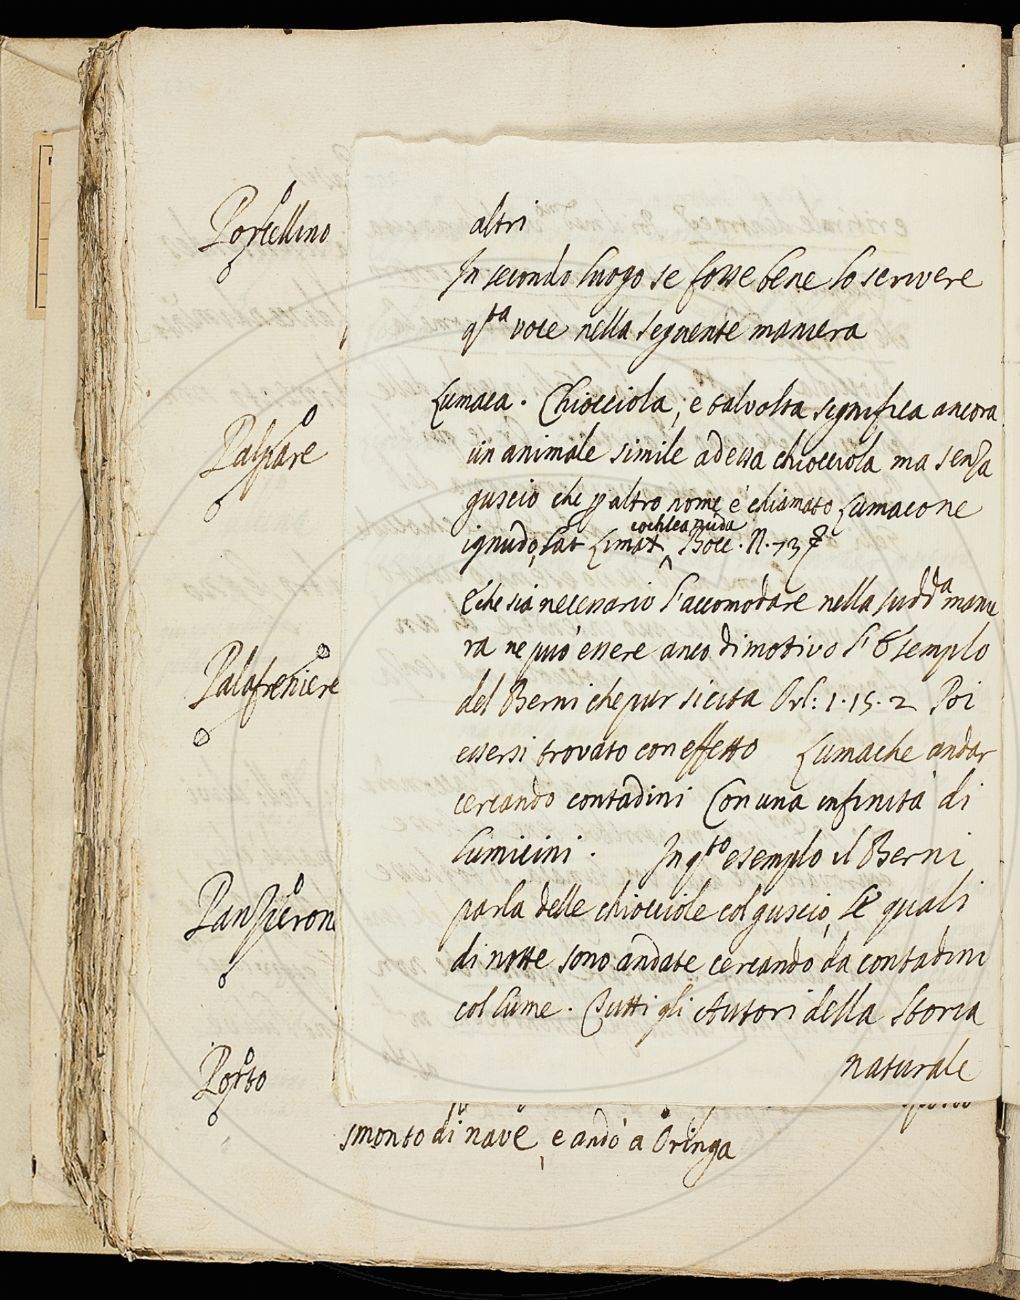 Porcellino
Palpare
Palafreniere
Panzieron
Porto
altri
In secondo luogo se fosse bene lo scrivere
q.ta voce nella seguente maniera
Lumaca. Chiocciola, e talvolta significa ancora
un animale simile ad essa chiocciola ma senza
guscio che p altro nome è chiamato Lumacone
cochlea nuda
ignudo, Lat. Limax ^ Bocc. N. 73
E che sia necessario l'accomodare nella sudd.a manie
ra ne può essere anco di motivo l'Esemplo
del Berni che pur si cita Orl: 1. 15. 2 Poi
essersi trovato con effetto Lumache andar
cercando contadini Con una infinità di
lumicini. In q.to esemplo il Berni
parla delle chiocciole col guscio, le quali
di notte sono andate cercando da contadini
col lume. Tutti gli Autori della Storia
naturale
smontò di nave, e andò à Oringa